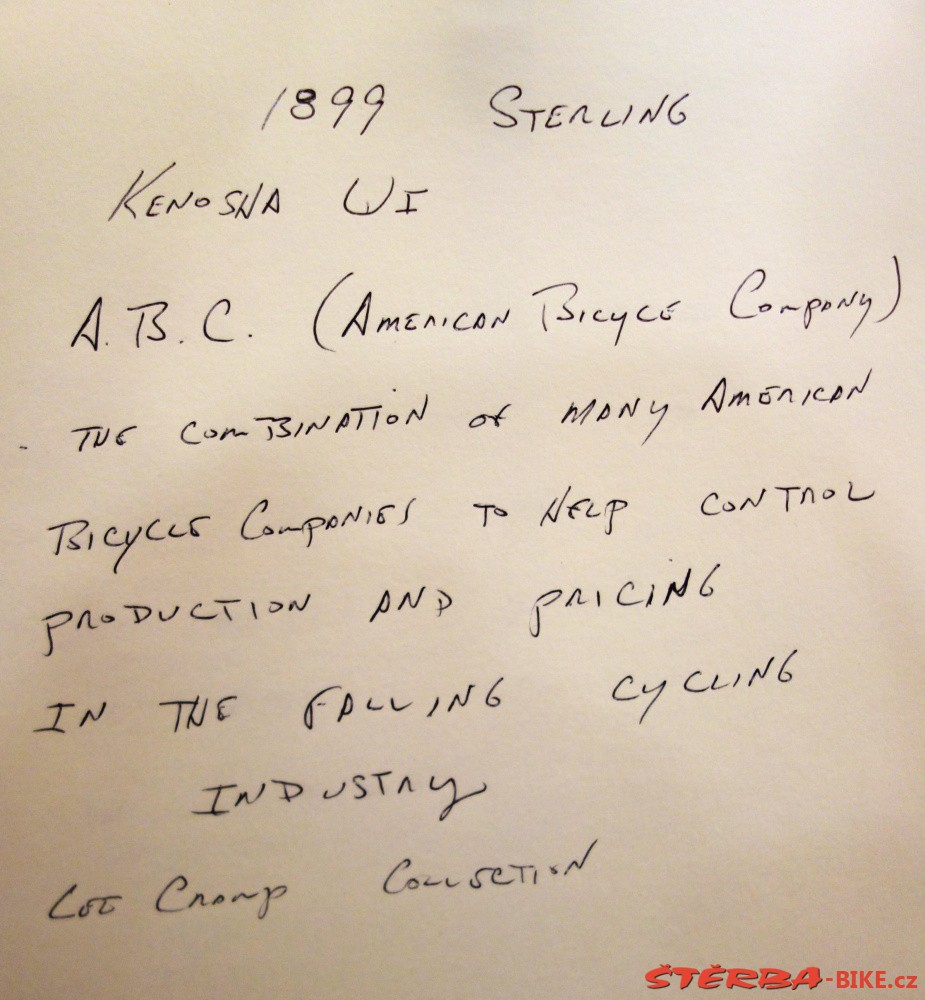 1899 STERLING
KENOSHA WI
A.B.C. (AMERICAN BICYCLE COMPANY)
THE COMBINATION OF MANY AMERICAN
BICYCLE COMPANIES TO HELP CONTROL
PRODUCTION AND PRICING
IN THE FALLING CYCLING
INDUSTRY
COLLECTION
ŠTĚRBA-BIKE.cz